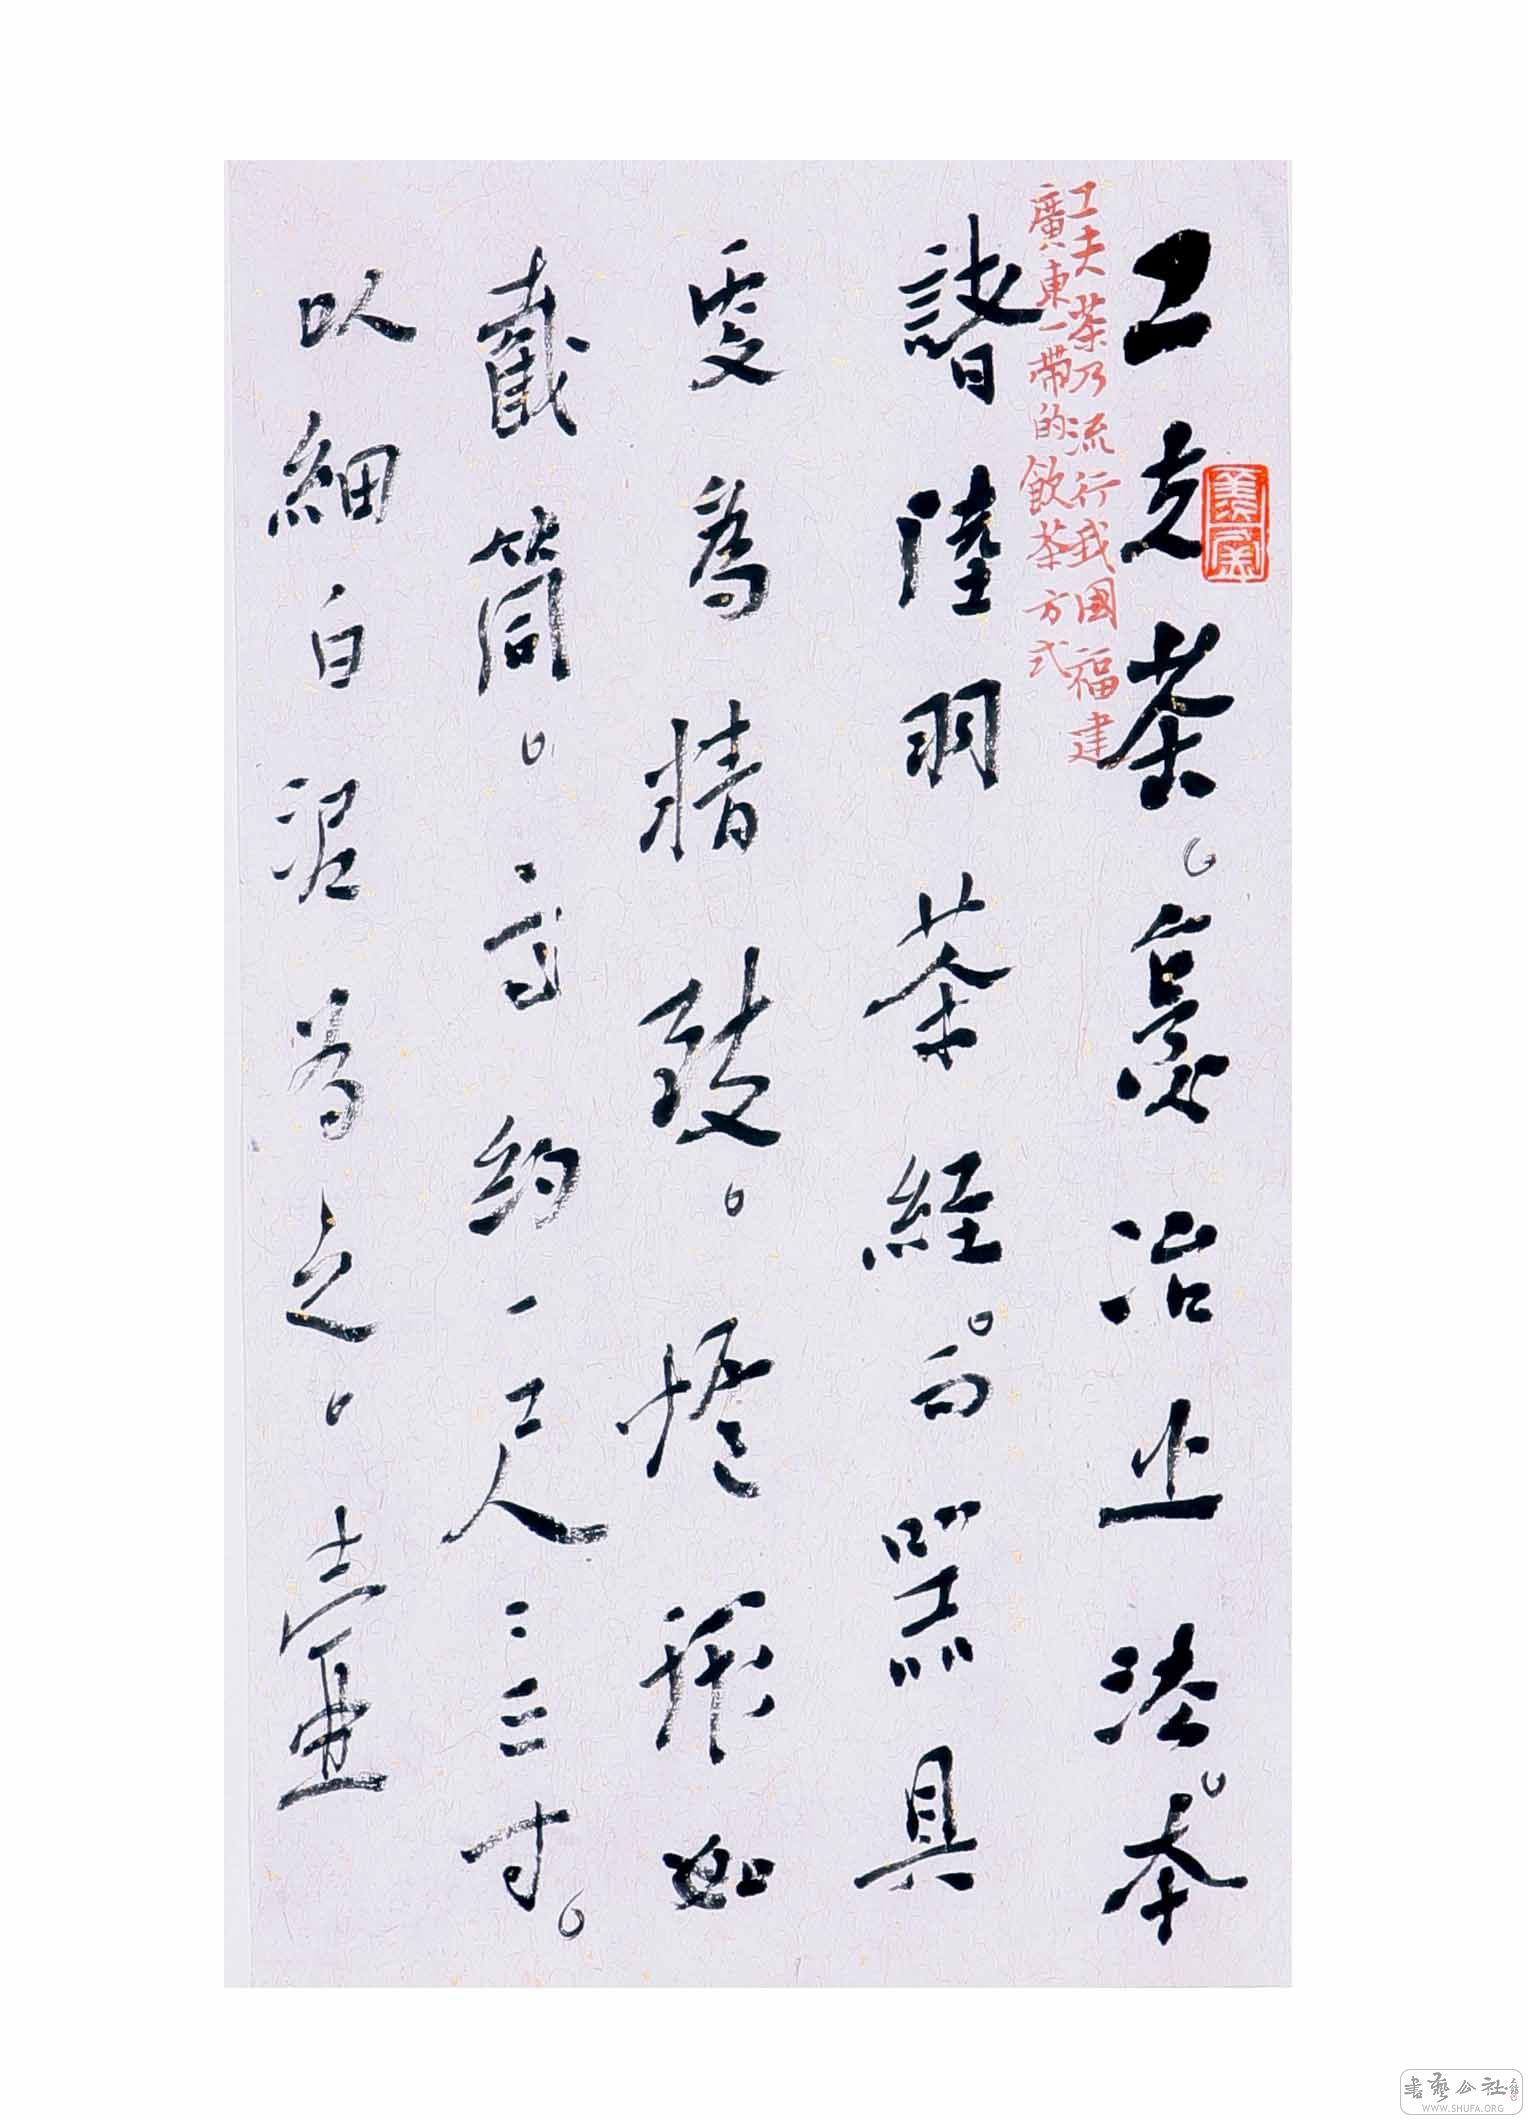 工夫茶。烹冶之法。本
諸陸羽茶經。而器具
更為精致。爐形如
截筒。高約一尺二三寸。
以細白泥為之。壺
工夫茶乃流行我國福建
廣東一帶的飲茶方式
書藝公社
WWW.SHUFA.ORG